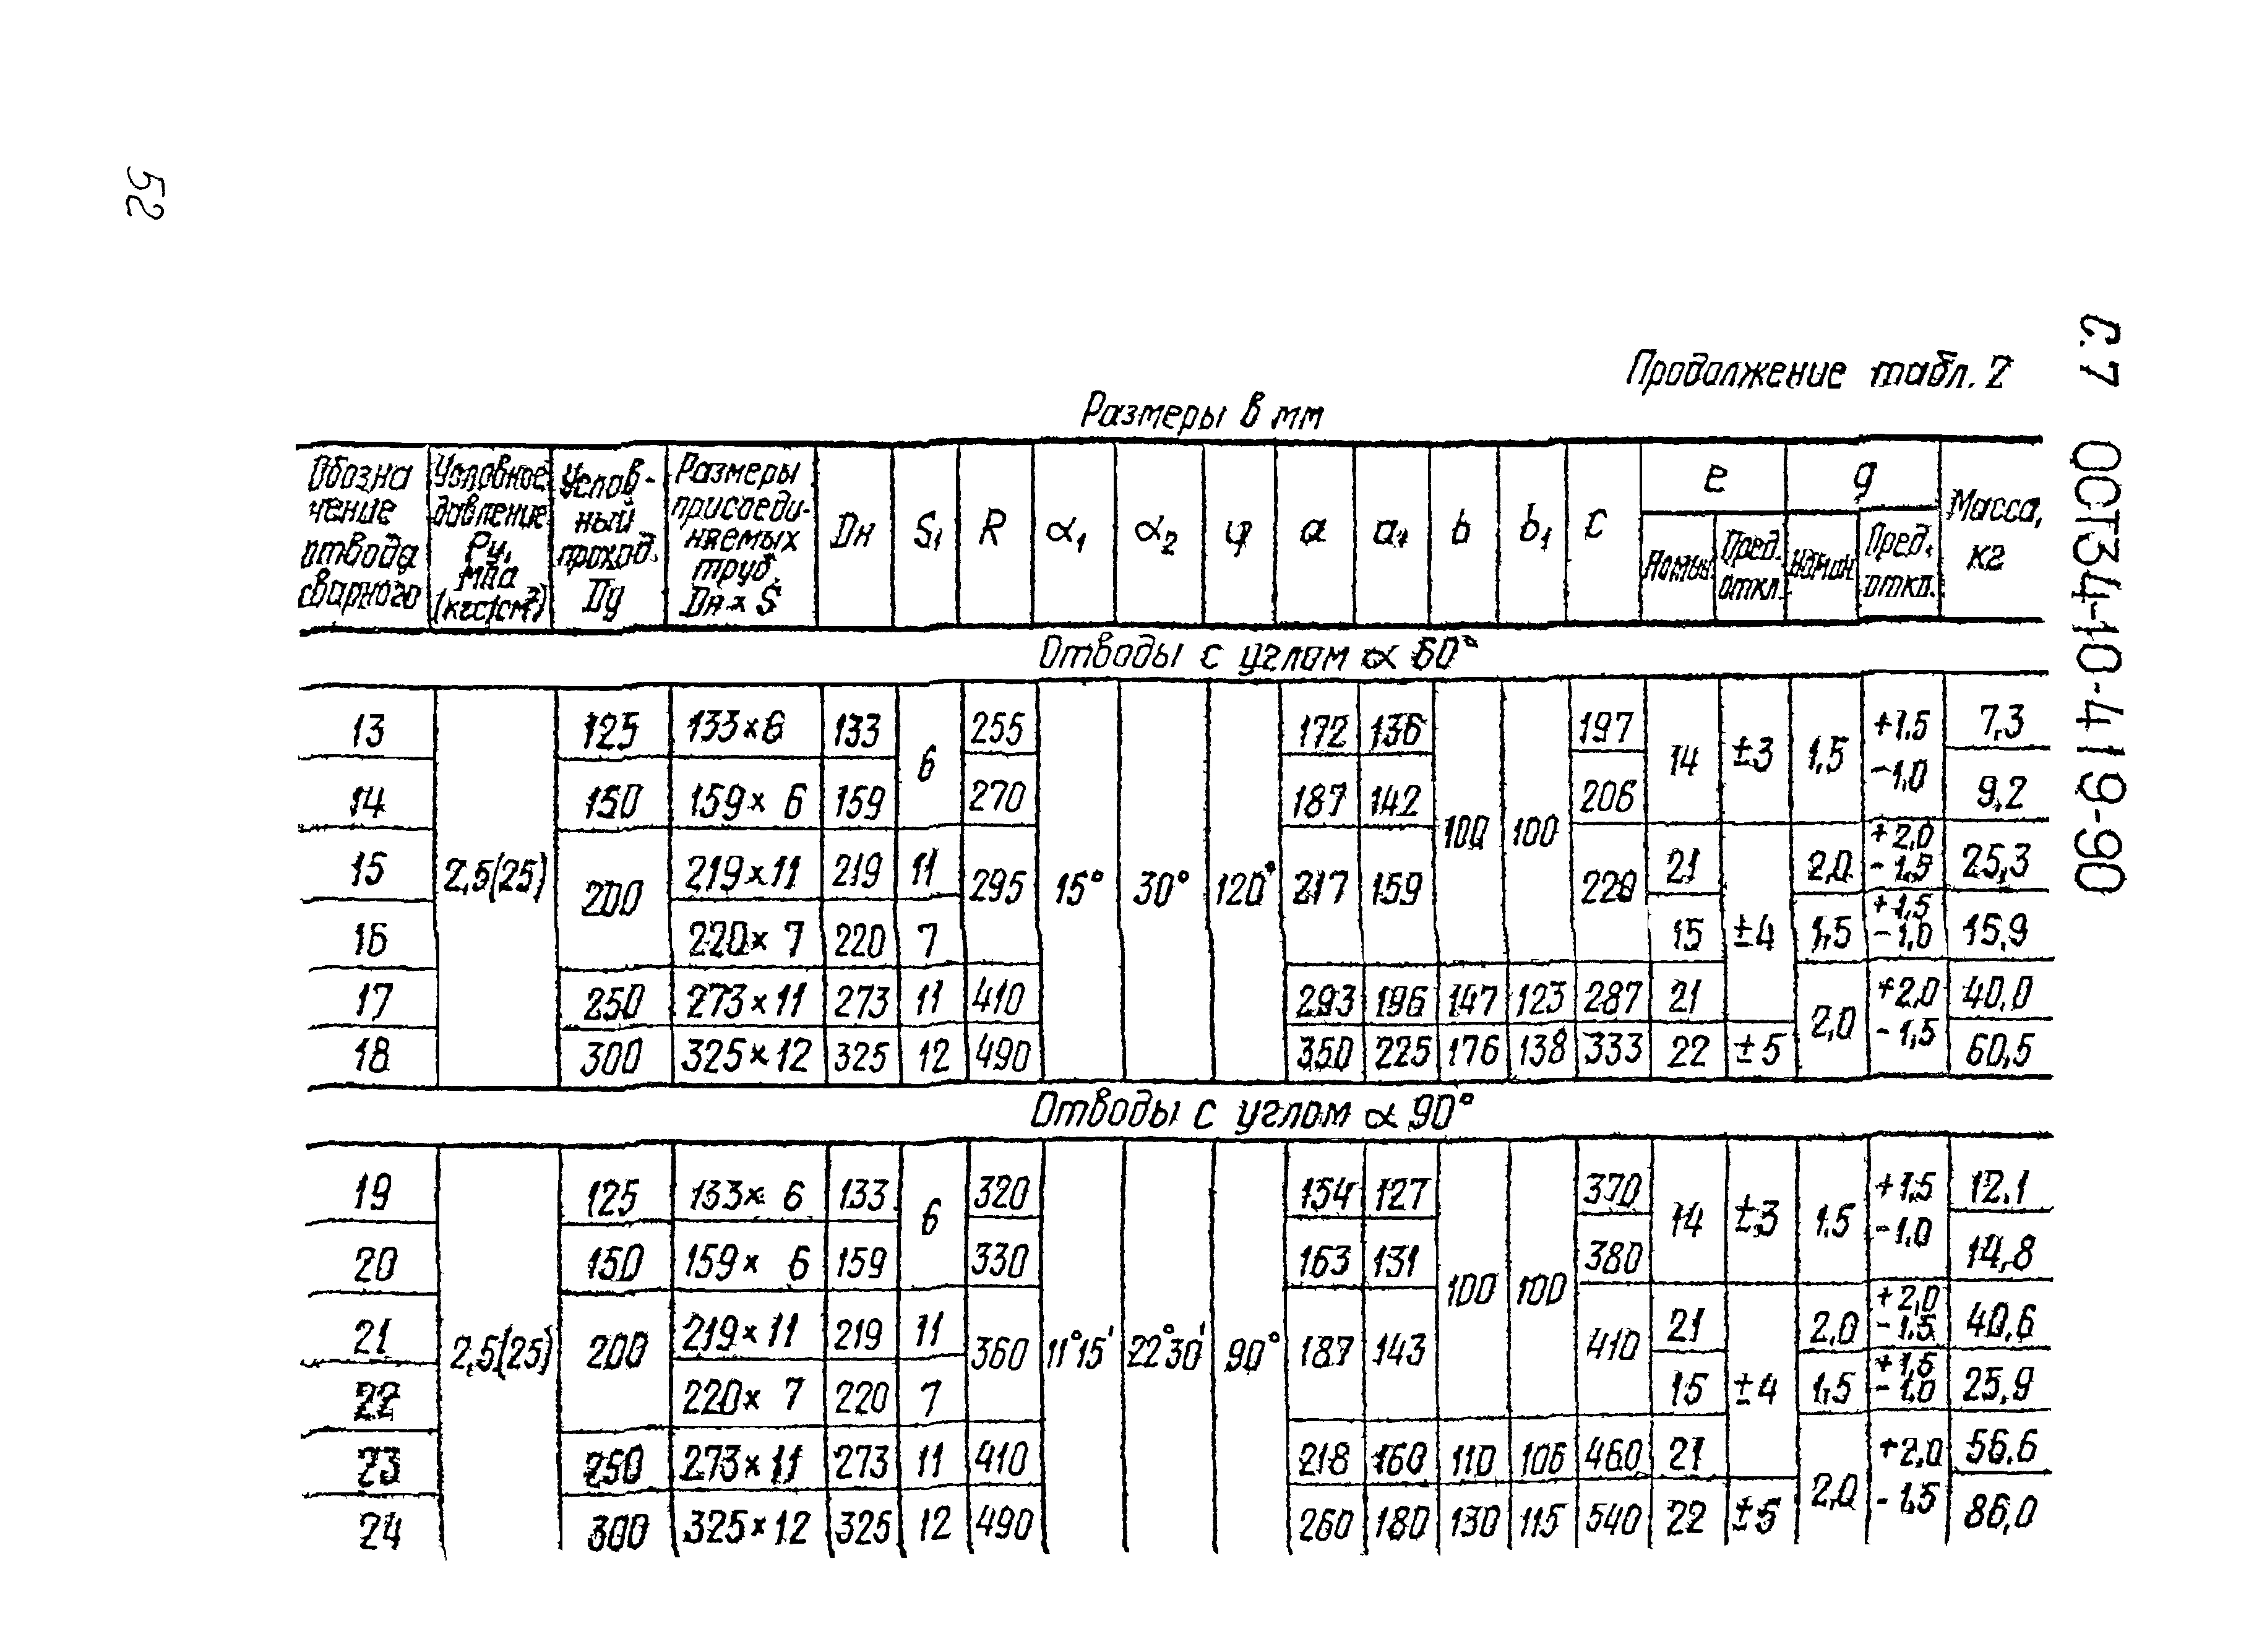 52
С.7 ОСТ34-10-419-90
Продолжение табл. 2
Размеры в мм
Обозна чение отвода сварного | Условное давление Ру, МПа (кгс/см²) | Услов- ный проход. Ду | Размеры присоеди- няемых труб, Dн × S | Dн | S₁ | R | α₁ | α₂ | φ | a | a₁ | b | b₁ | c | e | g | Масса, кг
Номин | Пред. откл. | Номин | Пред. откл.
Отводы с углом α 60°
13 | 2,5(25) | 125 | 133×6 | 133 | 6 | 255 | 15° | 30° | 120° | 172 | 136 | 100 | 100 | 197 | 14 | ±3 | 1,5 | +1,5 -1,0 | 7,3
14 | 150 | 159× 6 | 159 | 270 | 187 | 142 | 206 | 9,2
15 | 200 | 219×11 | 219 | 11 | 295 | 217 | 159 | 220 | 21 | ±4 | 2,0 | +2,0 -1,5 | 25,3
16 | 220× 7 | 220 | 7 | 15 | 1,5 | +1,5 -1,0 | 15,9
17 | 250 | 273×11 | 273 | 11 | 410 | 293 | 196 | 147 | 123 | 287 | 21 | 2,0 | +2,0 -1,5 | 40,0
18 | 300 | 325×12 | 325 | 12 | 490 | 350 | 225 | 176 | 138 | 333 | 22 | ±5 | 60,5
Отводы с углом α 90°
19 | 2,5(25) | 125 | 133× 6 | 133 | 6 | 320 | 11°15' | 22°30' | 90° | 154 | 127 | 100 | 100 | 370 | 14 | ±3 | 1,5 | +1,5 -1,0 | 12,1
20 | 150 | 159× 6 | 159 | 330 | 163 | 131 | 380 | 14,8
21 | 200 | 219×11 | 219 | 11 | 360 | 187 | 143 | 410 | 21 | ±4 | 2,0 | +2,0 -1,5 | 40,6
22 | 220× 7 | 220 | 7 | 15 | 1,5 | +1,5 -1,0 | 25,9
23 | 250 | 273×11 | 273 | 11 | 410 | 218 | 160 | 110 | 106 | 460 | 21 | 2,0 | +2,0 -1,5 | 56,6
24 | 300 | 325×12 | 325 | 12 | 490 | 260 | 180 | 130 | 115 | 540 | 22 | ±5 | 86,0